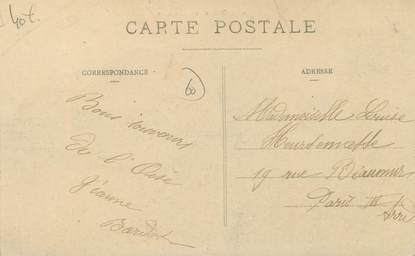 40t.
CARTE POSTALE
CORRESPONDANCE
60
ADRESSE
Bons souvenirs
de l'Oise
Jeanne
Mademoiselle Louise
19 rue Réaumur
Paris III
Arrd